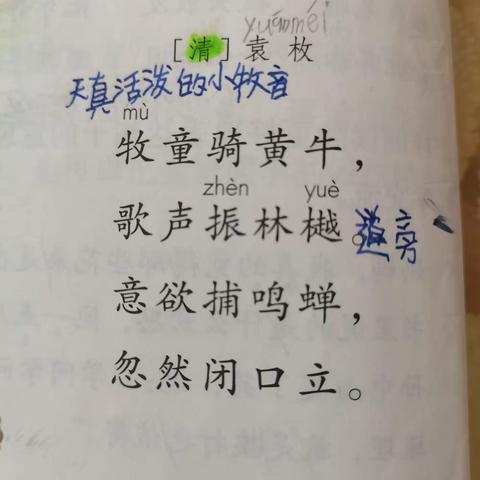 yuánméi
[清]袁枚
天真活泼的小牧音
mù
牧童骑黄牛，
zhèn yuè
歌声振林樾。
旁
意欲捕鸣蝉，
忽然闭口立。